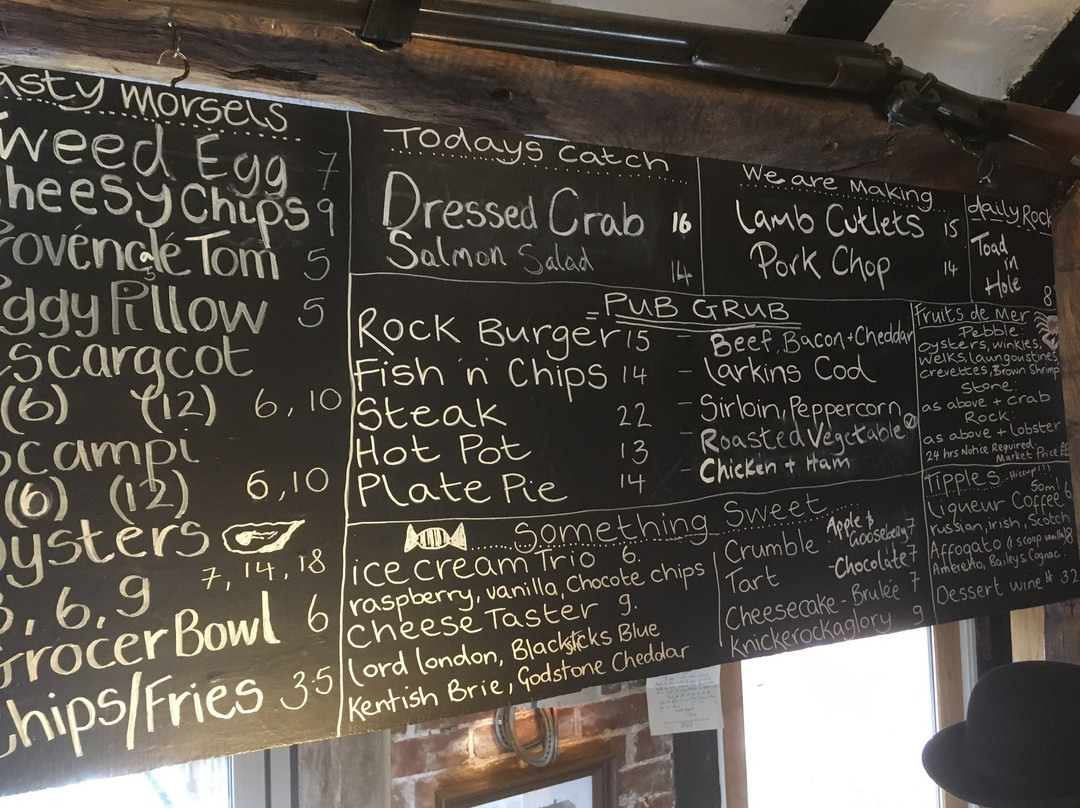 asty Morsels
weed Egg 7
heesy Chips 9
rovéncale Tom 5
ggy Pillow 5
scargcot
(6) (12) 6, 10
campi
(6) (12) 6,10
ysters
3, 6, 9 7, 14, 18
rocer Bowl 6
hips/Fries 3.5
Todays Catch
Dressed Crab 16
Salmon Salad 14
We are Making
Lamb Cutlets 15
Pork Chop 14
daily Rock
Toad
in
Hole 8
PUB GRUB
Rock Burger 15 - Beef, Bacon + Cheddar
Fish 'n' Chips 14 - Larkins Cod
Steak 22 - Sirloin, Peppercorn
Hot Pot 13 - Roasted Vegetable
Plate Pie 14 - Chicken + Ham
Fruits de Mer
Pebble:
oysters, winkles,
welks, laungoustines,
crevettes, Brown Shrimp
Stone:
as above + crab
Rock:
as above + lobster
24 hrs Notice Required.
Market Price
Something Sweet
ice cream Trio 6.
raspberry, vanilla, Chocote chips
Cheese Taster 9.
lord london, Blacksticks Blue
Kentish Brie, Godstone Cheddar
Crumble Apple & Gooseberry 7
Tart -Chocolate 7
Cheesecake - Brulée 7
Knickerockaglory 9
Tipples Hiccup!!!
50ml
Liqueur Coffee 6
russian, irish, Scotch
Affogato (1 scoop vanilla) 8
Ameretto, Baileys, Cognac
Dessert wine 32